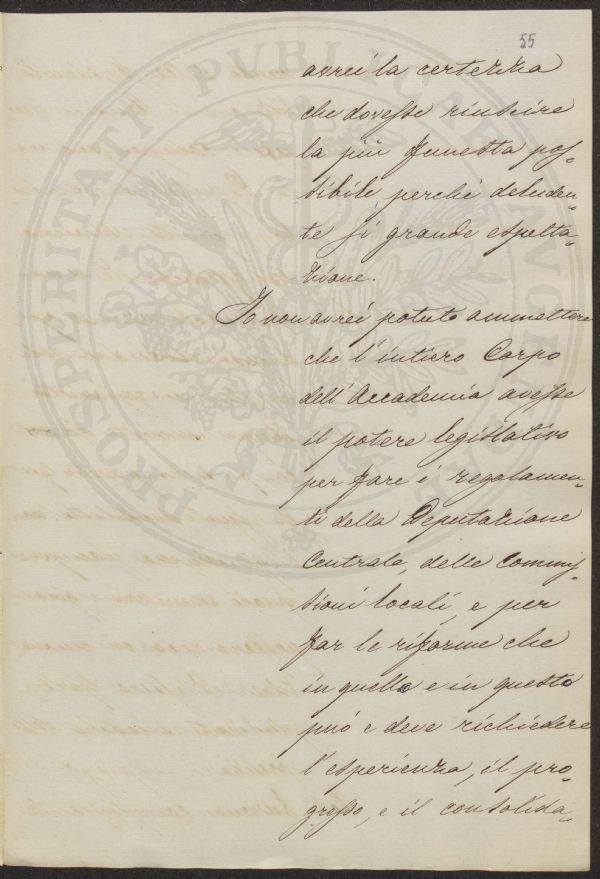 55
avrei la certezza
che dovesse riuscire
la più funesta pos-
sibile, perchè deluden-
te sì grande espetta-
zione.
Io non avrei potuto ammettere
che l'intiero Corpo
dell'Accademia avesse
il potere legislativo
per fare i regolamen-
ti della Deputazione
Centrale, delle Commis-
sioni locali, e per
far le riforme che
in quello e in questo
può e deve richiedere
l'esperienza, il pro-
gresso, e il consolida-
PROSPERITATI PUBLICAE AUGENDAE